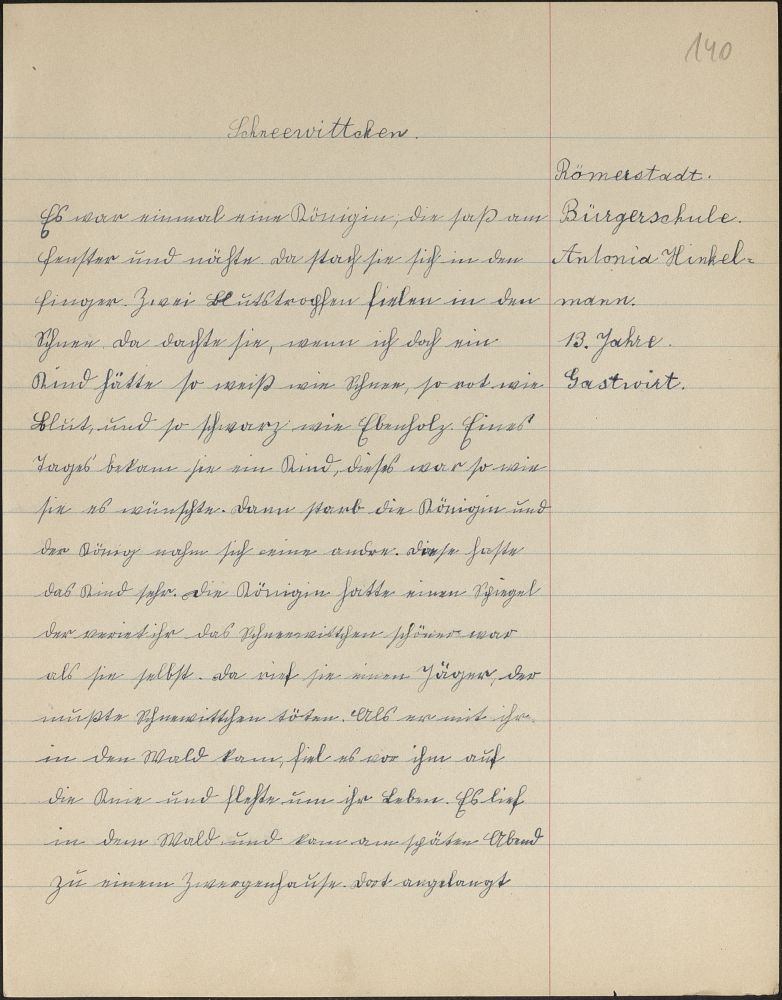 140
Schneewittchen.
Römerstadt.
Bürgerschule.
Antonia Hinkel=
mann.
13. Jahre.
Gastwirt.
Es war einmal eine Königin, die saß am
Fenster und nähte. Da stach sie sich in den
Finger. Zwei Blutstropfen fielen in den
Schnee. Da dachte sie, wenn ich doch ein
Kind hätte so weiß wie Schnee, so rot wie
Blut, und so schwarz wie Ebenholz. Eines
Tages bekam sie ein Kind, dieses war so wie
sie es wünschte. Dann starb die Königin und
der König nahm sich eine andre. Diese haßte
das Kind sehr. Die Königin hatte einen Spiegel
der veriet ihr das Schneewittchen schöner war
als sie selbst. Da rief sie einen Jäger, der
mußte Schnewittchen töten. Als er mit ihr
in den Wald kam, fiel es vor ihm auf
die Knie und flehte um ihr Leben. Es lief
in dem Wald und kam am späten Abend
zu einem Zwergenhause. Dort angelangt